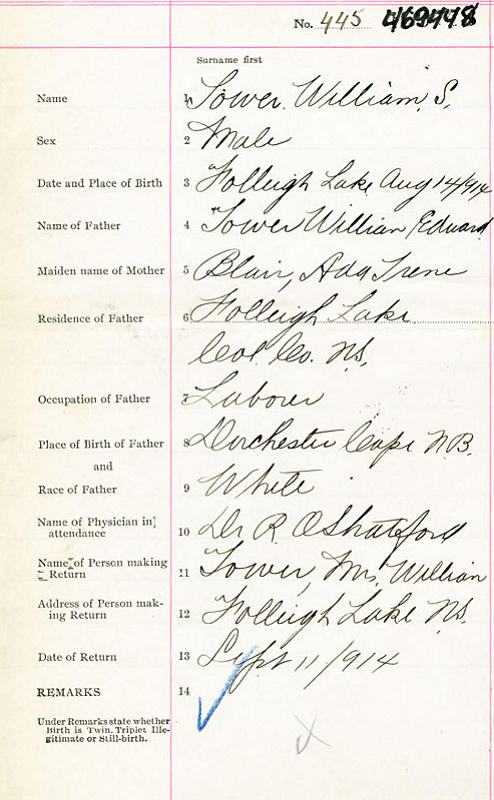 No. 445 469448
Surname first
Name 1 Tower. William S.
Sex 2 Male
Date and Place of Birth 3 Folleigh Lake Aug 14/914
Name of Father 4 Tower William Edward
Maiden name of Mother 5 Blair, Ada Irene
Residence of Father 6 Folleigh Lake
Col. Co. N.S.
Occupation of Father 7 Laborer
Place of Birth of Father 8 Dorchester Cape N.B.
and
Race of Father 9 White
Name of Physician in
attendance 10 Dr R. O Shatford
Name of Person making
Return 11 Tower, Mr. William
Address of Person mak-
ing Return 12 Folleigh Lake N.S.
Date of Return 13 Sept 11/914
REMARKS 14
Under Remarks state whether
Birth is Twin, Triplet Ille-
gitimate or Still-birth.